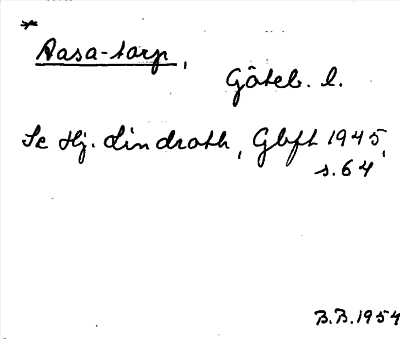 *
Aasa-tarp, Göteb. l.
Se Hj. Lindroth, Gbft 1945,
s. 64
B.B. 1954